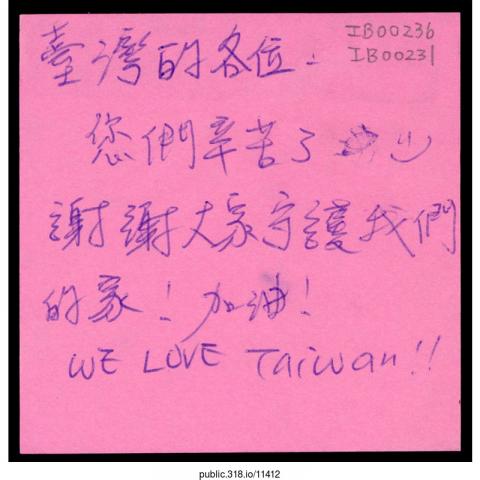 IB00236
IB00231
臺灣的各位：
您們辛苦了
謝謝大家守護我們
的家！加油！
WE LOVE Taiwan!!
public.318.io/11412